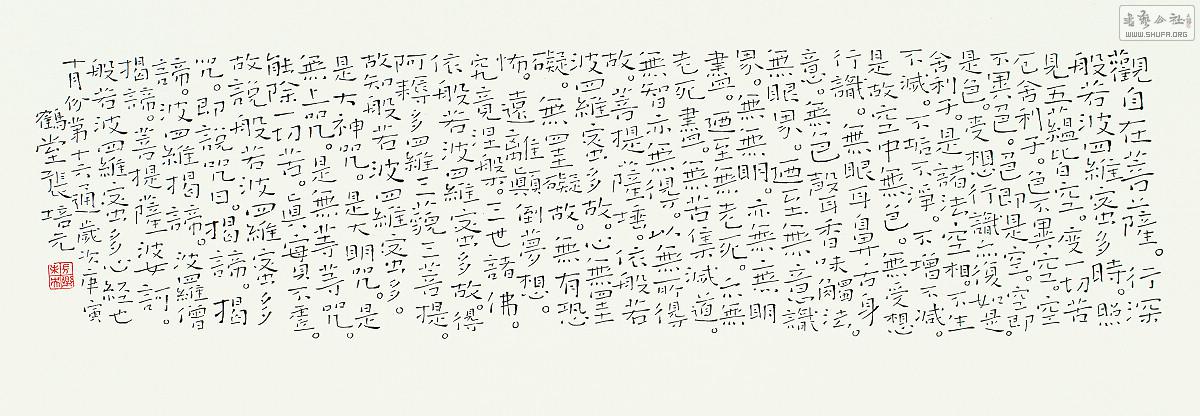 觀自在菩薩。行深
般若波羅蜜多時。照
見五蘊皆空。度一切苦
厄。舍利子。色不異空。空
不異色。色即是空。空即
是色。受想行識亦復如是。
舍利子。是諸法空相。不生
不滅。不垢不淨。不增不減。
是故空中無色。無受想
行識。無眼耳鼻舌身
意。無色聲香味觸法。
無眼界。迺至無意識
界。無無明。亦無無明
盡。迺至無老死。亦無
老死盡。無苦集滅道。
無智亦無得。以無所得
故。菩提薩埵。依般若
波羅蜜多故。心無罣
礙。無罣礙故。無有恐
怖。遠離顛倒夢想。
究竟涅槃。三世諸佛。
依般若波羅蜜多故。得
阿耨多羅三藐三菩提。
故知般若波羅蜜多。
是大神咒。是大明咒。是
無上咒。是無等等咒。
能除一切苦。真實不虛。
故說般若波羅蜜多
咒。即說咒曰。揭諦。揭
諦。波羅揭諦。波羅僧
揭諦。菩提薩婆訶。
般若波羅蜜多心經也
十月份第十六通歲次庚寅
鶴堂張培元
WWW.SHUFA.ORG